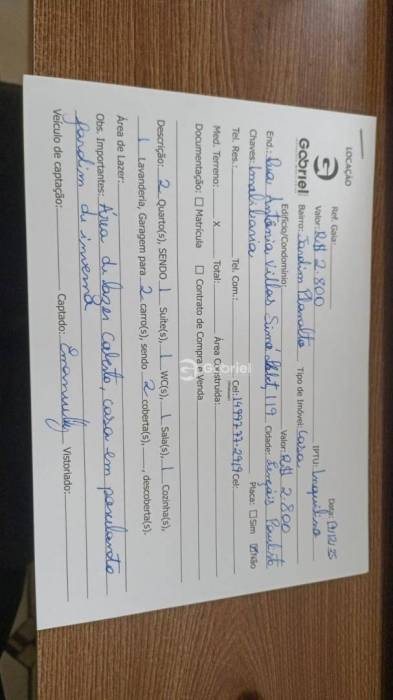 LOCAÇÃO
Ref. Gaia: Data: 19/12/25
Valor: R$ 2.800 IPTU: Inquilino
Gabriel Bairro: Jardim Planalto Tipo de Imóvel: Casa
Edifício/Condomínio: Valor: R$ 2.800
End.: Rua Antônia Villas 119 Cidade: Lençóis Paulista
Chaves: Imobiliaria Placa: Sim Não
Tel. Res.: Tel. Com.: Cel: Cel:
Med. Terreno: X Total: Área Construída:
Documentação: Matrícula Contrato de Compra e Venda
Gabriel
Descrição: 2 Quarto(s), SENDO 1 Suíte(s), 1 WC(s), 1 Sala(s), 1 Cozinha(s),
1 Lavanderia, Garagem para 2 carro(s), sendo 2 coberta(s), , descoberta(s).
Área de Lazer:
Obs. Importantes: Área de lazer Coberta, casa em porcelanato
Jardim de inverno
Veículo de captação: Captado: Emanuelly Vistoriado: